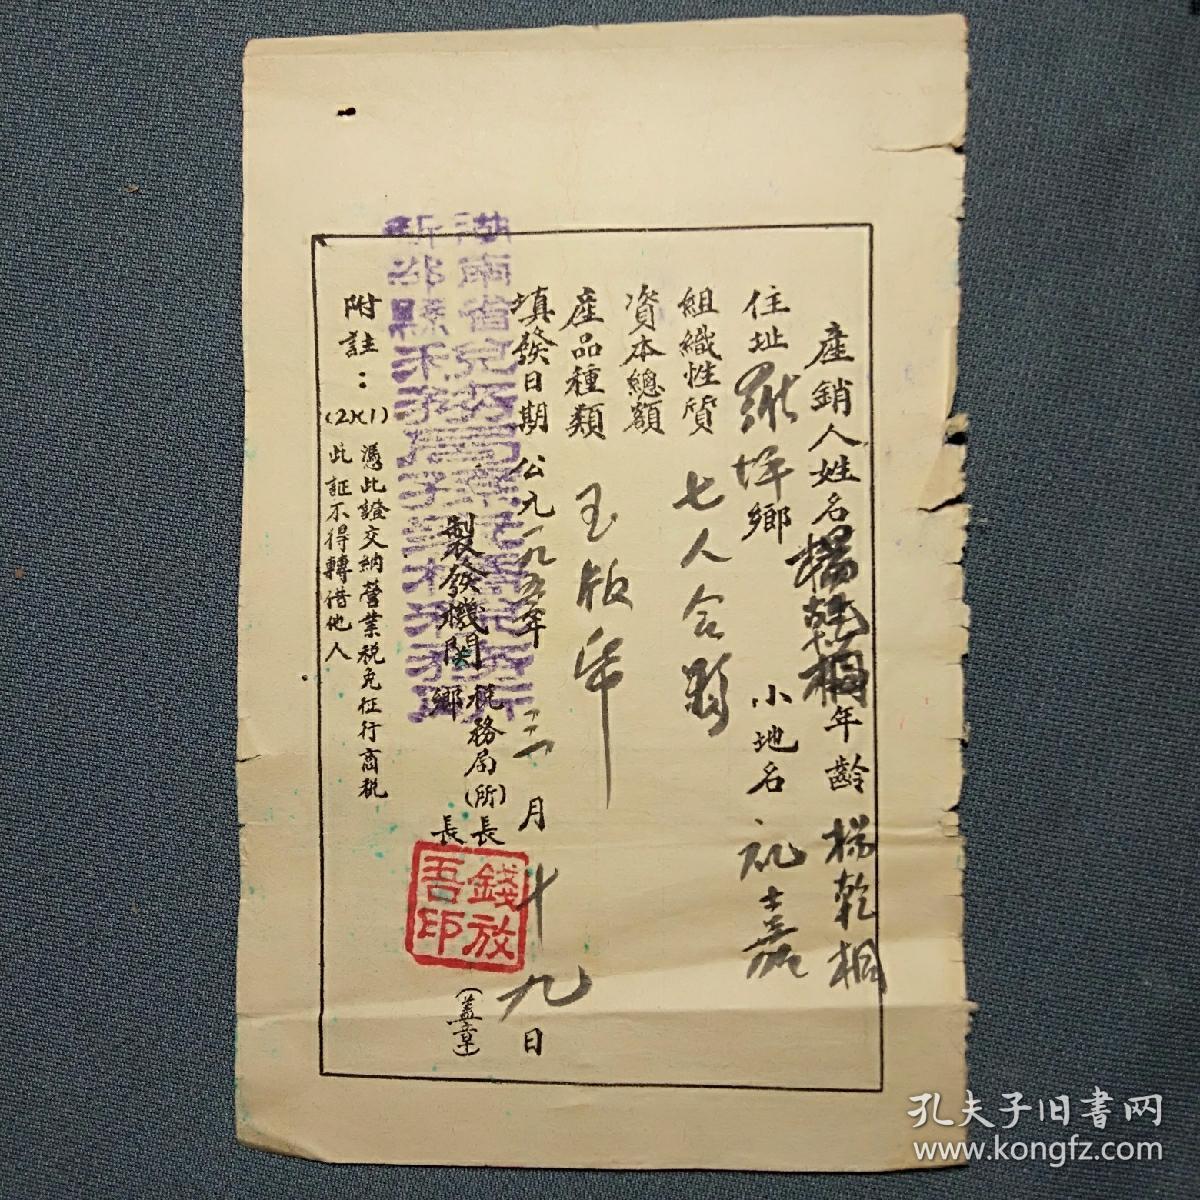 產銷人姓名 楊乾桐 年齡 楊乾桐
住址 坪鄉 小地名
組織性質 七人合夥
資本總額
産品種類 玉版
填發日期 公元一九五年三月十九日
製發機関 税務局(所)長
鄉 長
(蓋章)
附註：
(1) 憑此證交納營業税免征行商税
(2) 此証不得轉借他人
湖南省
新縣
錢放
吾印
孔夫子旧書网
www.kongfz.com